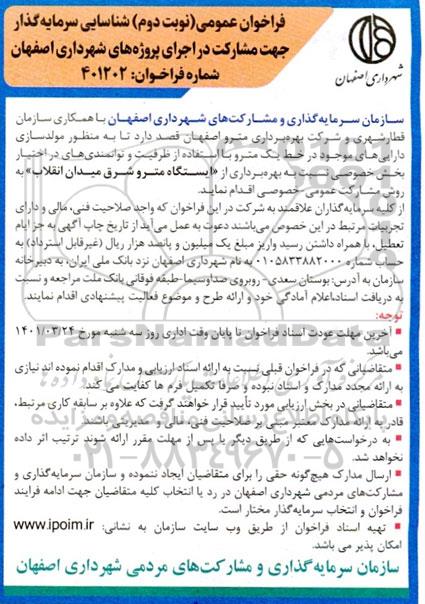 فراخوان عمومی(نوبت دوم) شناسایی سرمایه‌گذار
جهت مشارکت در اجرای پروژه‌های شهرداری اصفهان
شماره فراخوان: ۴۰۱۲۰۲
شهرداری اصفهان
سازمان سرمایه‌گذاری و مشارکت‌های شهرداری اصفهان با همکاری سازمان
قطارشهری و شرکت بهره‌برداری مترو اصفهان قصد دارد تا به منظور مولدسازی
دارایی‌های موجود در خط یک مترو با استفاده از ظرفیت و توانمندی‌های در اختیار
بخش خصوصی نسبت به بهره‌برداری از «ایستگاه مترو شرق میدان انقلاب» به
روش مشارکت عمومی خصوصی اقدام نمایند.
از کلیه سرمایه‌گذاران علاقمند به شرکت در این فراخوان که واجد صلاحیت فنی، مالی و دارای
تجربیات مرتبط در این خصوص می‌باشند دعوت به عمل می‌آید از تاریخ چاپ آگهی به جز ایام
تعطیل، با همراه داشتن رسید واریز مبلغ یک میلیون و پانصد هزار ریال (غیرقابل استرداد) به
حساب شماره ۰۱۰۵۸۳۳۸۸۲۰۰۰ به نام شهرداری اصفهان نزد بانک ملی ایران، به دبیرخانه
سازمان به آدرس: بوستان سعدی- روبروی صداوسیما-طبقه فوقانی بانک ملت مراجعه و نسبت
به دریافت اسناد،اعلام آمادگی خود و ارائه طرح و موضوع فعالیت پیشنهادی اقدام نمایند.
توجه:
▪ آخرین مهلت عودت اسناد فراخوان تا پایان وقت اداری روز سه شنبه مورخ ۱۴۰۱/۰۳/۲۴
می‌باشد.
▪ متقاضیانی که در فراخوان قبلی نسبت به ارائه اسناد ارزیابی و مدارک اقدام نموده اند نیازی
به ارائه مجدد مدارک و اسناد نبوده و صرفا تکمیل فرم ها کفایت می کند.
▪ متقاضیانی در بخش ارزیابی مورد تأیید قرار خواهند گرفت که علاوه بر سابقه کاری مرتبط،
قادر به ارائه مدارک معتبر مبنی بر صلاحیت فنی، مالی و مدیریتی باشند.
▪ به درخواست‌هایی که از طریق دیگر یا پس از مهلت مقرر ارائه شوند ترتیب اثر داده
نخواهد شد.
▪ ارسال مدارک هیچ‌گونه حقی را برای متقاضیان ایجاد ننموده و سازمان سرمایه‌گذاری و
مشارکت‌های مردمی شهرداری اصفهان در رد یا انتخاب کلیه متقاضیان جهت ادامه فرایند
فراخوان و انتخاب سرمایه‌گذار مختار است.
▪ تهیه اسناد فراخوان از طریق وب سایت سازمان به نشانی: www.ipoim.ir
امکان پذیر می باشد.
سازمان سرمایه‌گذاری و مشارکت‌های مردمی شهرداری اصفهان
ParsNamadData
۰۲۱-۸۸۳۴۹۶۷۰-۵